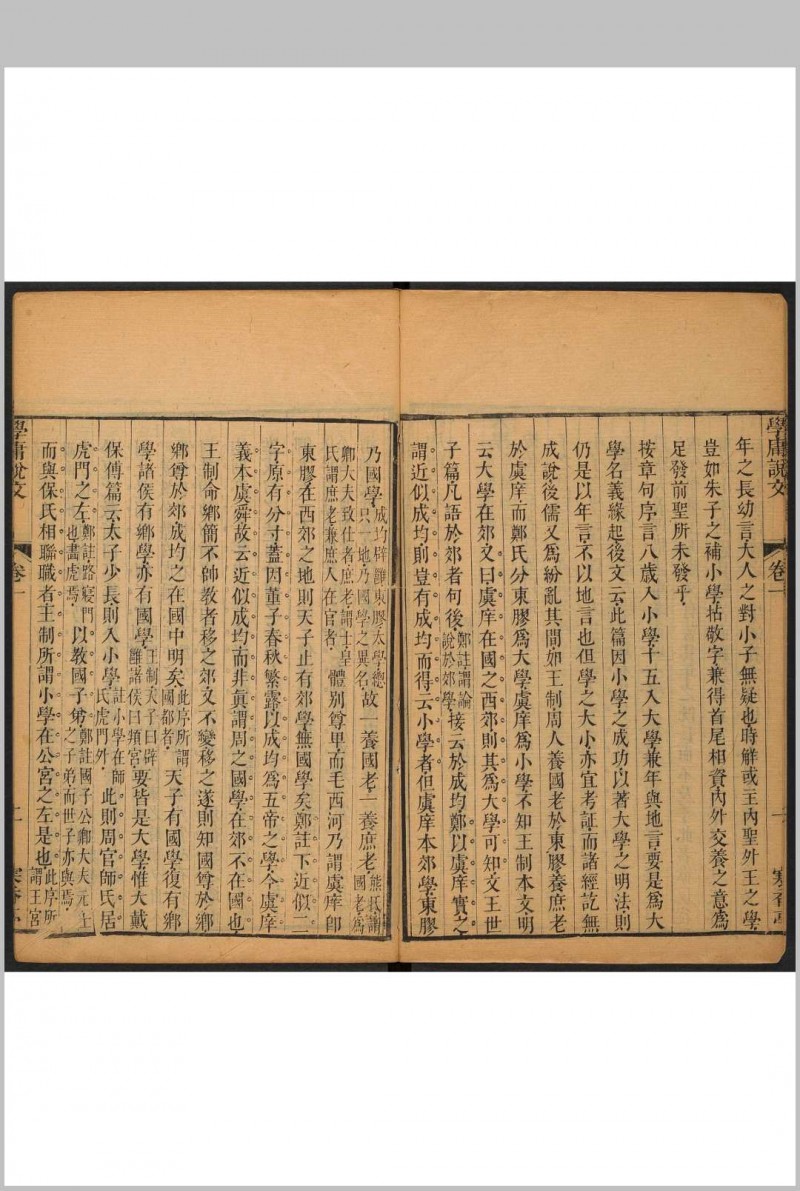 學庸說文
卷一
一
年之長幼言大人之對小子無疑也時解或主內聖外王之學
豈如朱子之補小學拈敬字兼得首尾相資內外交養之意為
足發前聖所未發乎
按章句序言八歲入小學十五入大學兼年與地言要是為大
學名義緣起後文云此篇因小學之成功以著大學之明法則
仍是以年言不以地言也但學之大小亦宜考証而諸經訖無
成說後儒又為紛亂其間如王制周人養國老於東膠養庶老
於虞庠而鄭氏分東膠為大學虞庠為小學不知王制本文明
云大學在郊文曰虞庠在國之西郊則其為大學可知文王世
子篇凡語於郊者句後鄭註謂論說於郊學接云於成均鄭以虞庠實之
謂近似成均則豈有成均而得云小學者但虞庠本郊學東膠
乃國學成均辟雝東膠太學總只一地乃國學之異名故一養國老一養庶老熊氏謂國老為
卿大夫致仕者庶老謂士皇氏謂庶老兼庶人在官者體別尊卑而毛西河乃謂虞庠卽
東膠在西郊之地則天子止有郊學無國學矣鄭註下近似二
字原有分寸蓋因董子春秋繁露以成均為五帝之學今虞庠
義本虞舜故云近似成均而非眞謂周之國學在郊不在國也
王制命鄉簡不帥教者移之郊文不變移之遂則知國尊於鄉
鄉尊於郊成均之在國中明矣此序所謂國都者天子有國學復有鄉
學諸侯有鄉學亦有國學王制天子曰辟雝諸侯曰頖宮要皆是大學惟大戴
保傅篇云太子少長則入小學註小學在師氏虎門外此則周官師氏居
虎門之左鄭註路寢門也畫虎焉以教國子弟鄭註國子公卿大夫元士之子弟而世子亦與焉
而與保氏相聯職者王制所謂小學在公宮之左是也此序所謂王宮
學庸說文
卷一
二